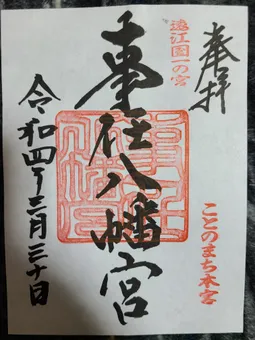 奉拝
遠江国一の宮
ことのまち本宮
事任八幡宮
令和四年三月三十日